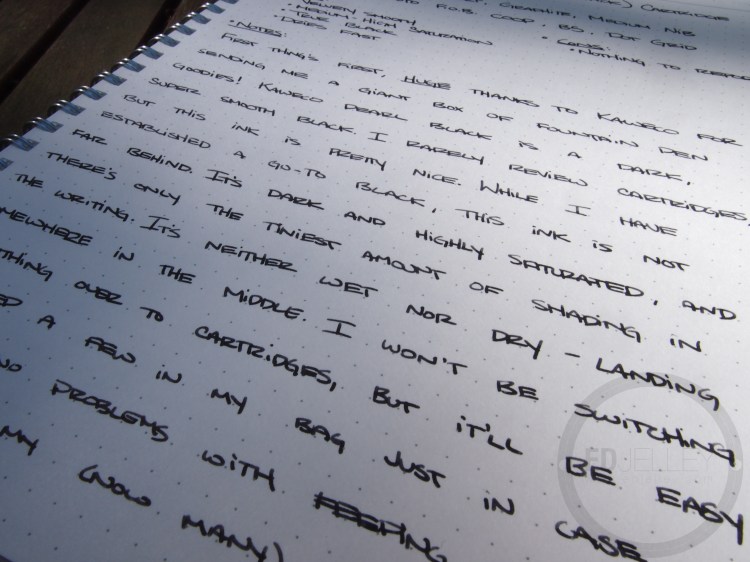 CARTRIDGE
GRAPHITE, MEDIUM NIB
F.O.B. COOP, BS, DOT GRID
• VELVETY SMOOTH
• MEDIUM-HIGH SATURATION • CONS:
• TRUE BLACK • NOTHING TO
• DRIES FAST
• NOTES:
FIRST THING'S FIRST, HUGE THANKS TO KAWECO FOR
SENDING ME A GIANT BOX OF FOUNTAIN PEN
GOODIES! KAWECO PEARL BLACK IS A DARK,
SUPER SMOOTH BLACK. I RARELY REVIEW CARTRIDGES,
BUT THIS INK IS PRETTY NICE. WHILE I HAVE
ESTABLISHED A GO-TO BLACK, THIS INK IS NOT
FAR BEHIND. IT'S DARK AND HIGHLY SATURATED, AND
THERE'S ONLY THE TINIEST AMOUNT OF SHADING IN
THE WRITING. IT'S NEITHER WET NOR DRY – LANDING
MEWHERE IN THE MIDDLE. I WON'T BE SWITCHING
THING OVER TO CARTRIDGES, BUT IT'LL BE EASY
A FEW IN MY BAG JUST IN CASE
NO PROBLEMS WITH
MY (NOW MANY)
ED JELLEY